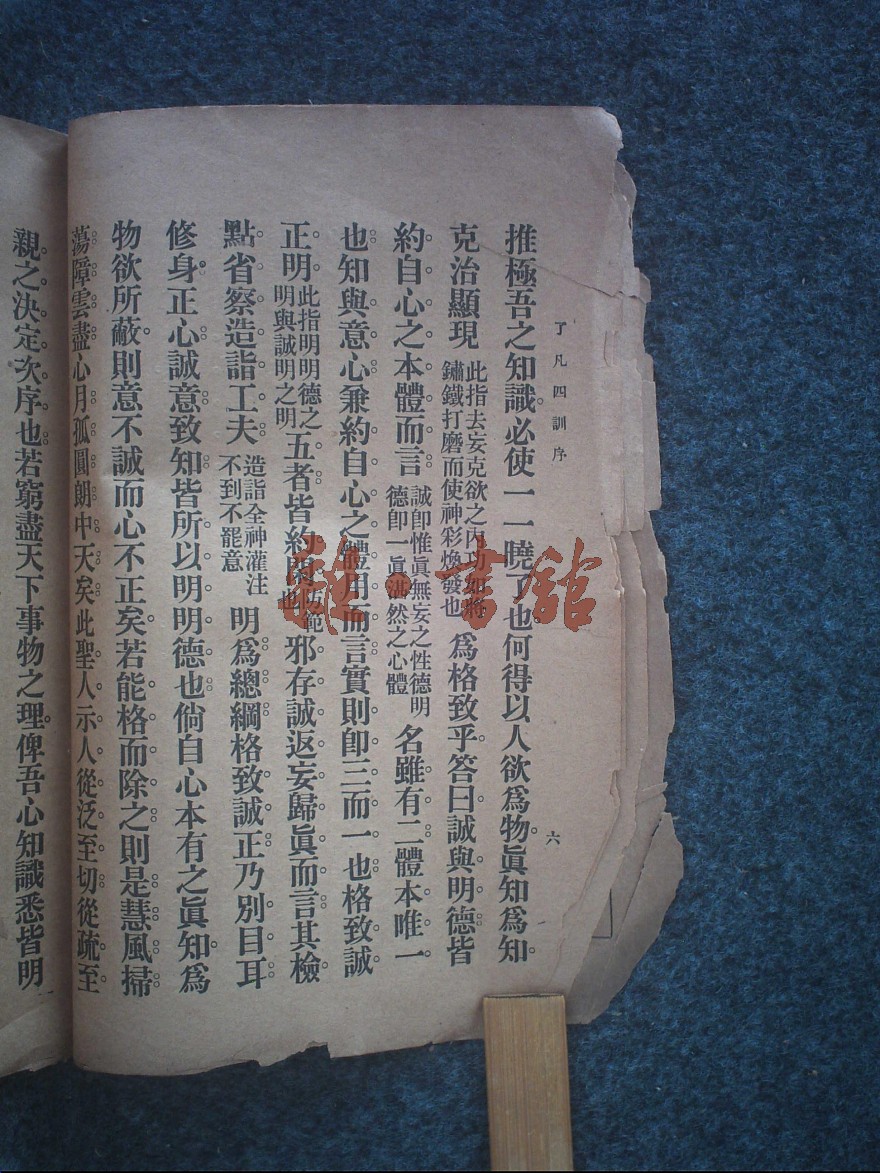 了凡四訓序
六
推極吾之知識必使一一曉了也何得以人欲爲物眞知爲知
克治顯現此指去妄克欲之內功如將鏽鐵打磨而使神彩煥發也爲格致乎答曰誠與明德皆
約自心之本體而言誠卽惟眞無妄之性德明德卽一眞湛然之心體名雖有二體本唯一
也知與意心兼約自心之體用而言實則卽三而一也格致誠
正明此指明明德之明與誠明之明五者皆約閑防範也邪存誠返妄歸眞而言其檢
點省察造詣工夫造詣全神灌注不到不罷意明爲總綱格致誠正乃別目耳
修身正心誠意致知皆所以明明德也倘自心本有之眞知爲
物欲所蔽則意不誠而心不正矣若能格而除之則是慧風掃
蕩障雲盡心月孤圓朗中天矣此聖人示人從泛至切從疏至
親之決定次序也若窮盡天下事物之理俾吾心知識悉皆明
雜·書舘